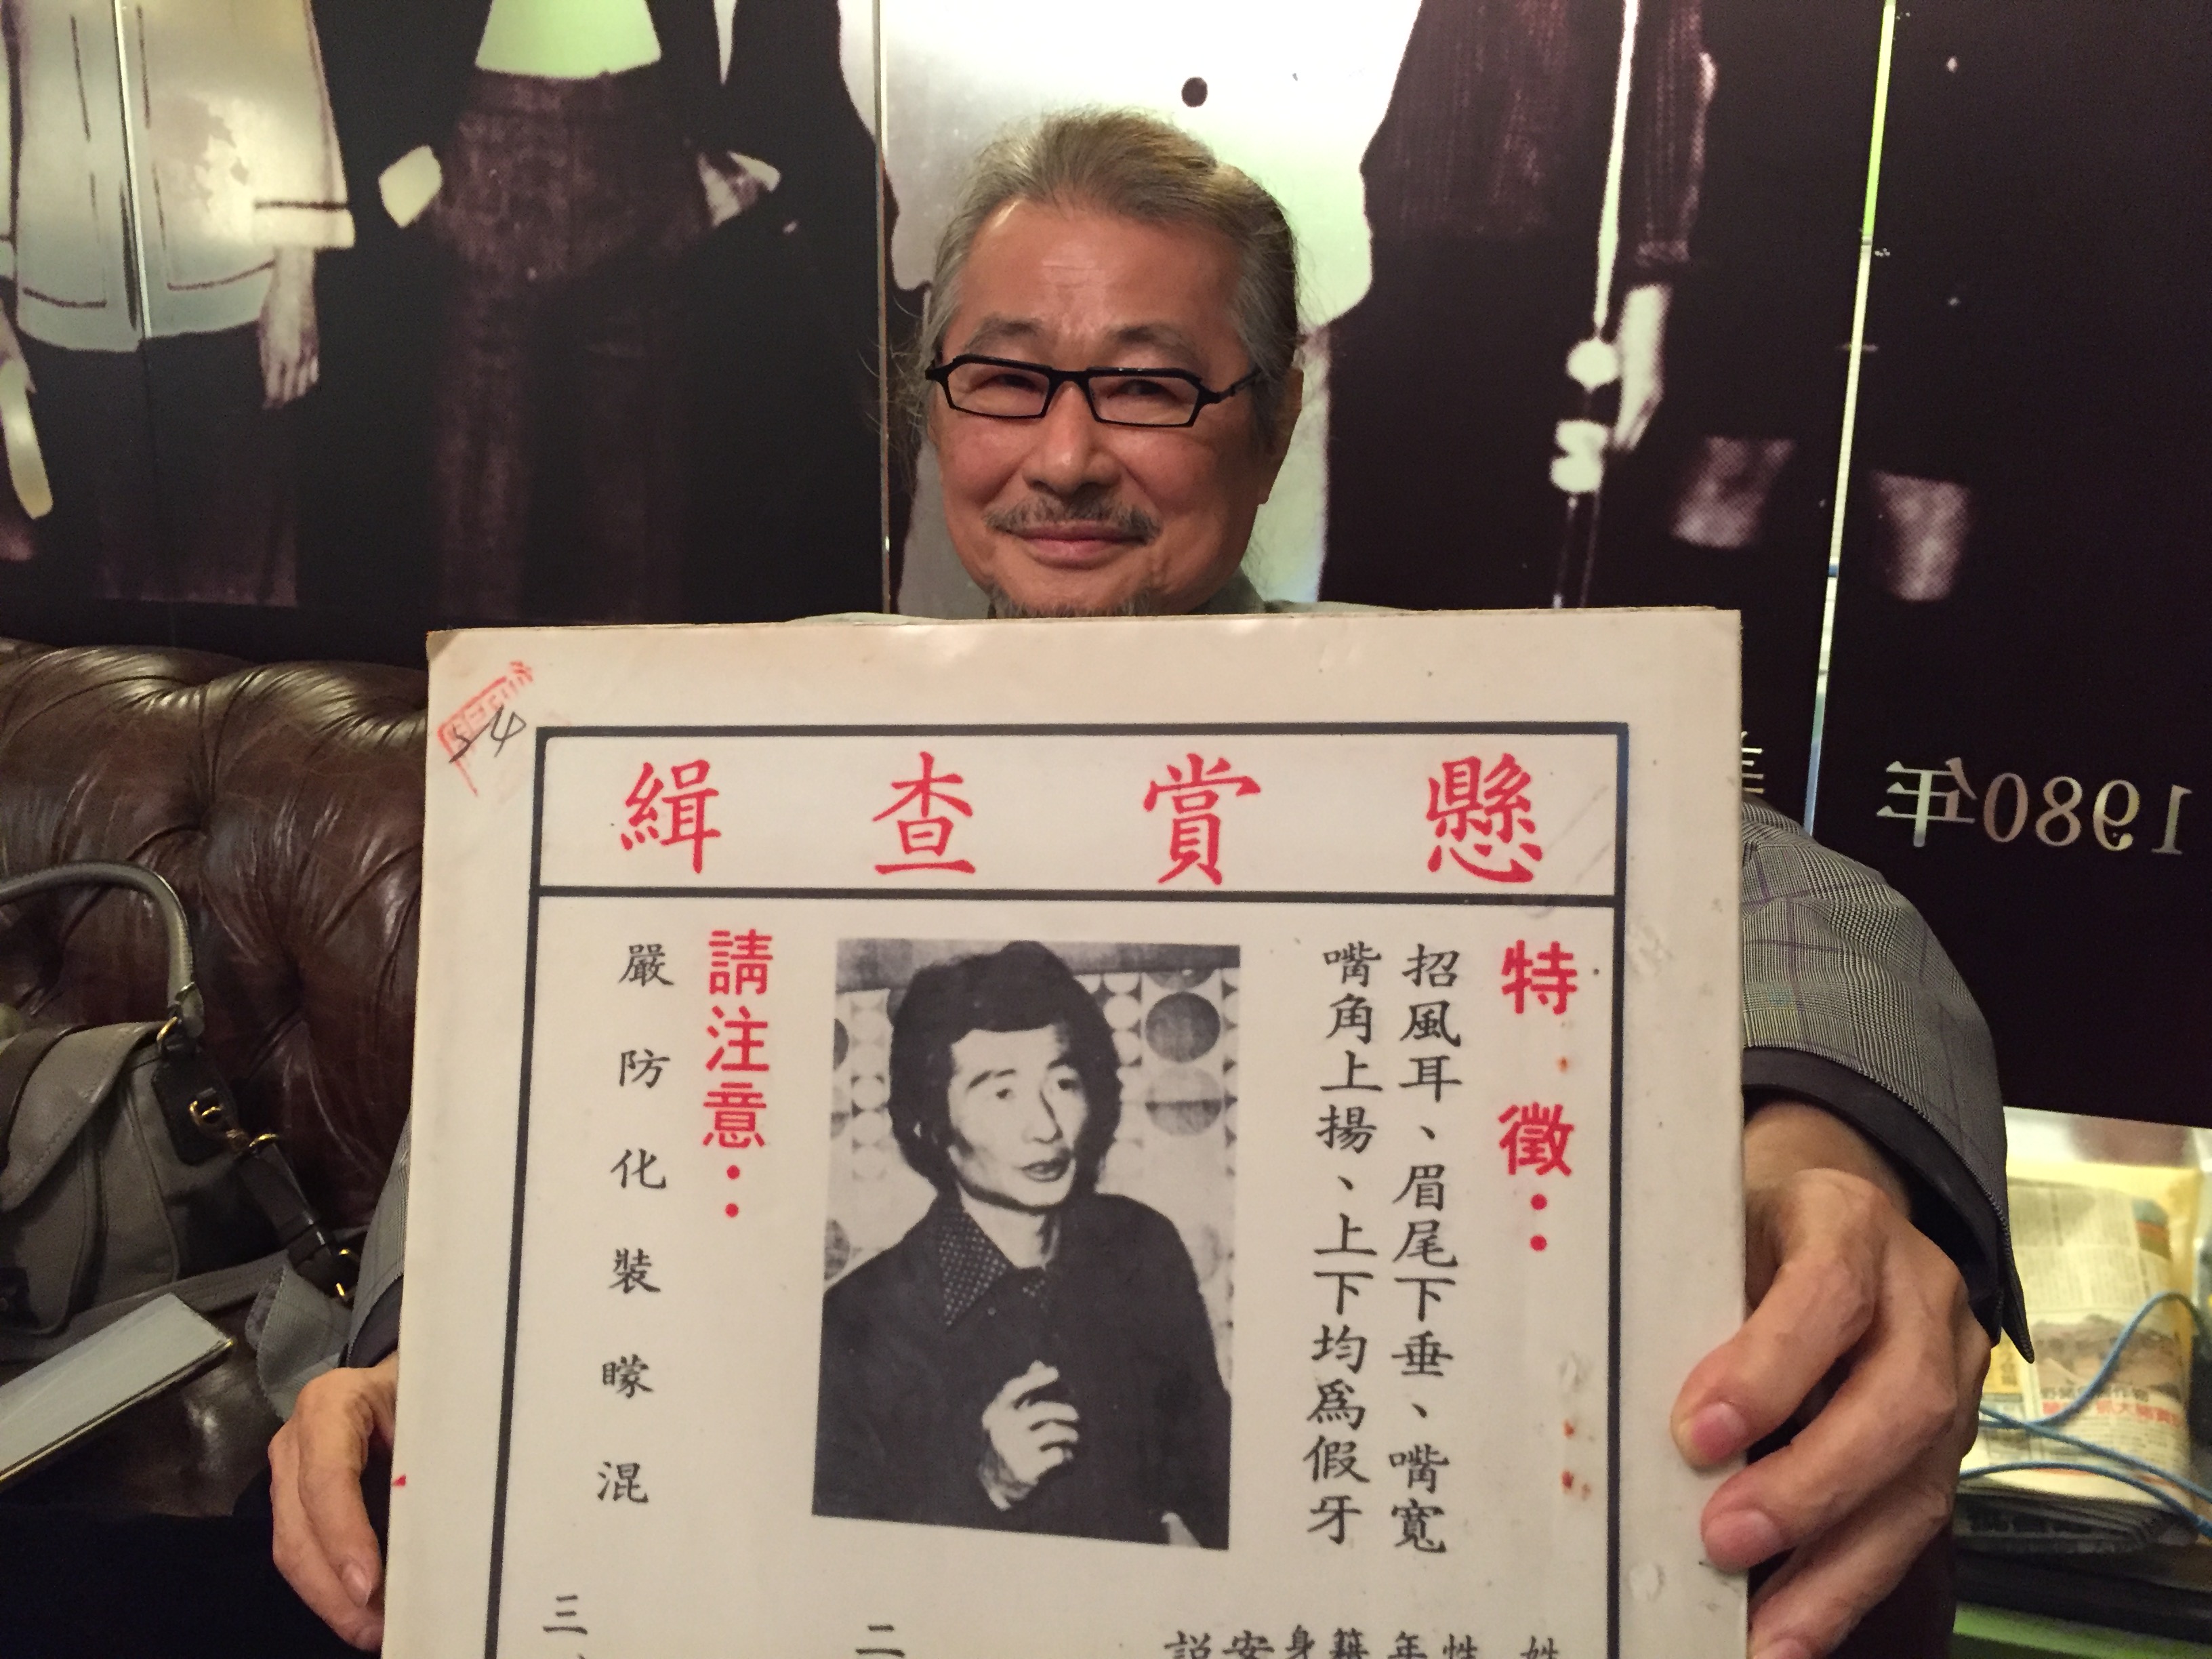 懸賞查緝
特徵：
招風耳、眉尾下垂、嘴寬
嘴角上揚、上下均為假牙
請注意：
嚴防化裝矇混
二
三、
54
1980年